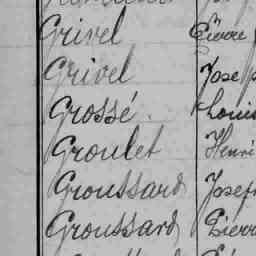 Grivel Pierre
Grivel Josep
Grossé. Louis
Groulet Henri
Groussard Josep
Groussard Pierr